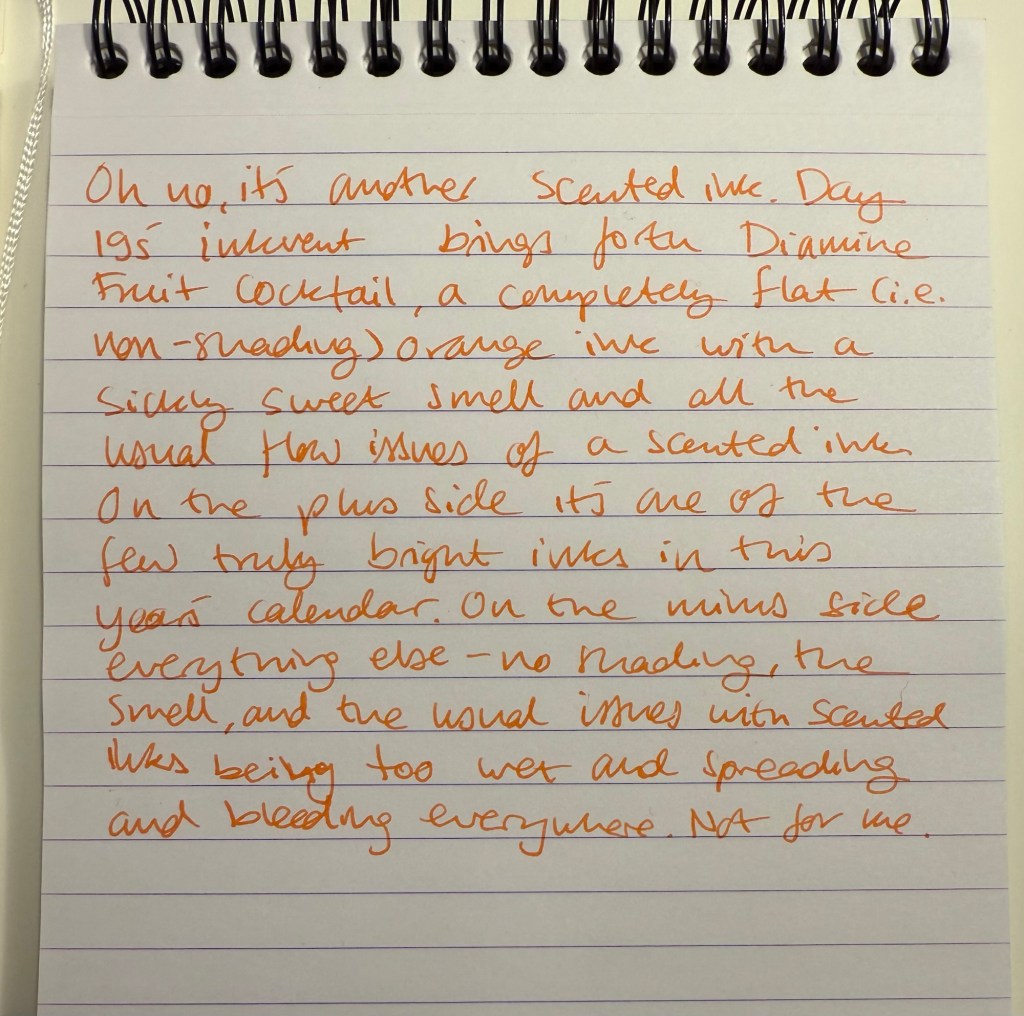 Oh no, it's another scented ink. Day
19s inkvent brings forth Diamine
Fruit Cocktail, a completely flat (i.e.
non-shading) orange ink with a
sickly sweet smell and all the
usual flow issues of a scented ink.
On the plus side it's one of the
few truly bright inks in this
years calendar. On the minus side
everything else - no shading, the
smell, and the usual issues with scented
inks being too wet and spreading
and bleeding everywhere. Not for me.